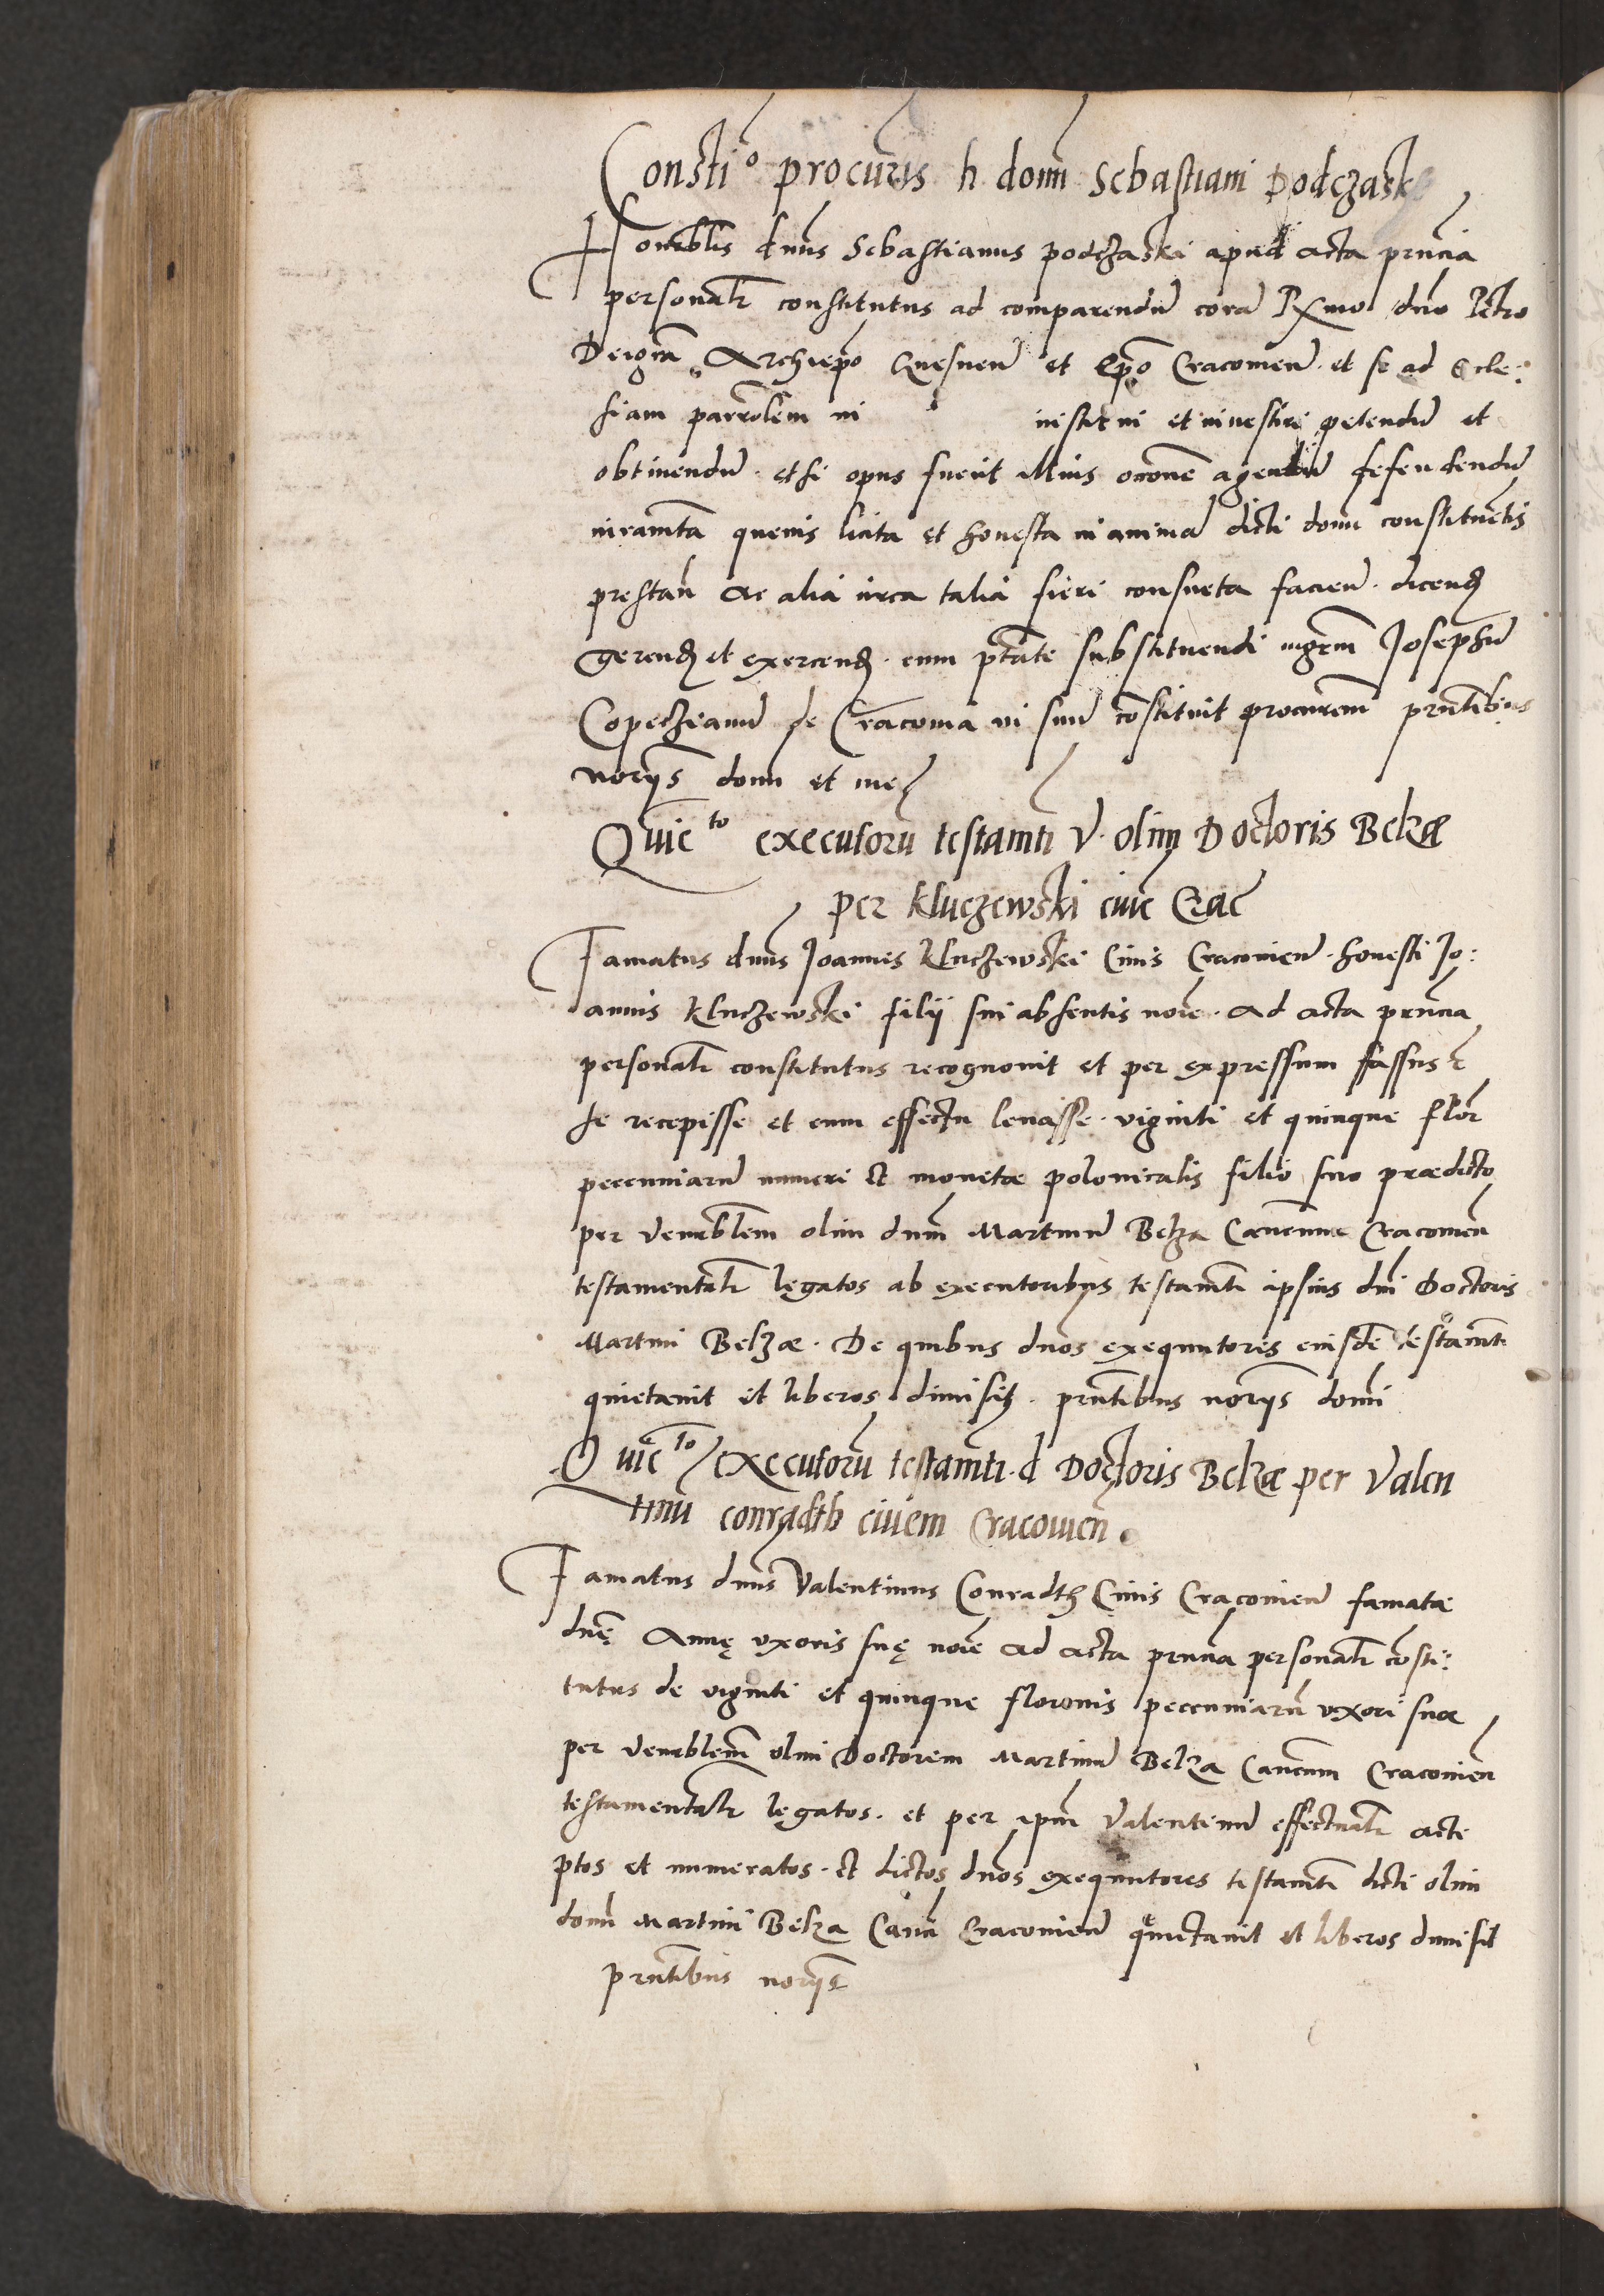 Consti° procuris h domi Sebastiani Podczaski
Honorablis dnus Sebastianus Podczaski apud acta prntia
personalr constitutus ad comparendū corā Rxmo dno Petro
Dei gra Archiepo Gnesnen et Epo Cracovien. et se ad Ecle:
siam parrolem in institui et investire petendū et
obtinendū. et si opus fuerit illius occone agendū defendendū
iuramta quevis licita et honesta in animā dicti domi constituentis
prestan ac alia circa talia fieri consueta facien. dicend
gerend et exercend. cum ptate substituendi mgrm Josephū
Copeczianū de Cracovia in suū constituit procurem prntibus
noriis domi et me
Quiet to executorū testamti v. olim Doctoris Belzæ
per Kluczewski civē Crac
Famatus dnus Joannes Kluczewski Civis Cracovien. honesti Jo:
annis Kluczewski filii sui absentis noie. ad acta prntia
personalr constitutus recognovit et per expressum fassus ē
se recepisse et cum effectu levasse. viginti et quinque flor
peccuniarū numeri et monetæ polonicalis filio suo prædicto
per venerablem olim dnum Martinū Belza Canonicum Cracovien
testamentalr legatos ab executoribus testamti ipsius dni Doctoris
Martini Belzæ. De quibus dnos exequutores eiusdē testamti
quietavit et liberos dimisit. prntibus noriis domi
Quiet to executorū testamti. d Doctoris Belzæ per Valen
tinū Conradth civem Cracovien.
Famatus dnus Valentinus Conradth Civis Cracovien famatæ
dnę Annę uxoris suę noie ad acta prntia personalr consti:
tutus de viginti et quinque florenis peccuniarū uxori suæ
per venerablem olim Doctorem Martinū Belza Canonicum Cracovien
testamentalr legatos. et per ipsum Valentinū effectualr acce
ptos et numeratos. et dictos dnos exequutores testamti dicti olim
domi Martini Belza Canci Cracovien quietavit et liberos dimisit
prntibus noriis